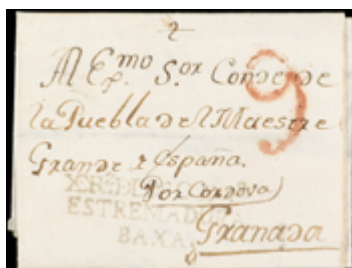 Al Ex.mo S.or Conde de
la Puebla de el Maestre
Grande de España.
Por Cordova
ESTREMADURA
BAXA
Granada
9